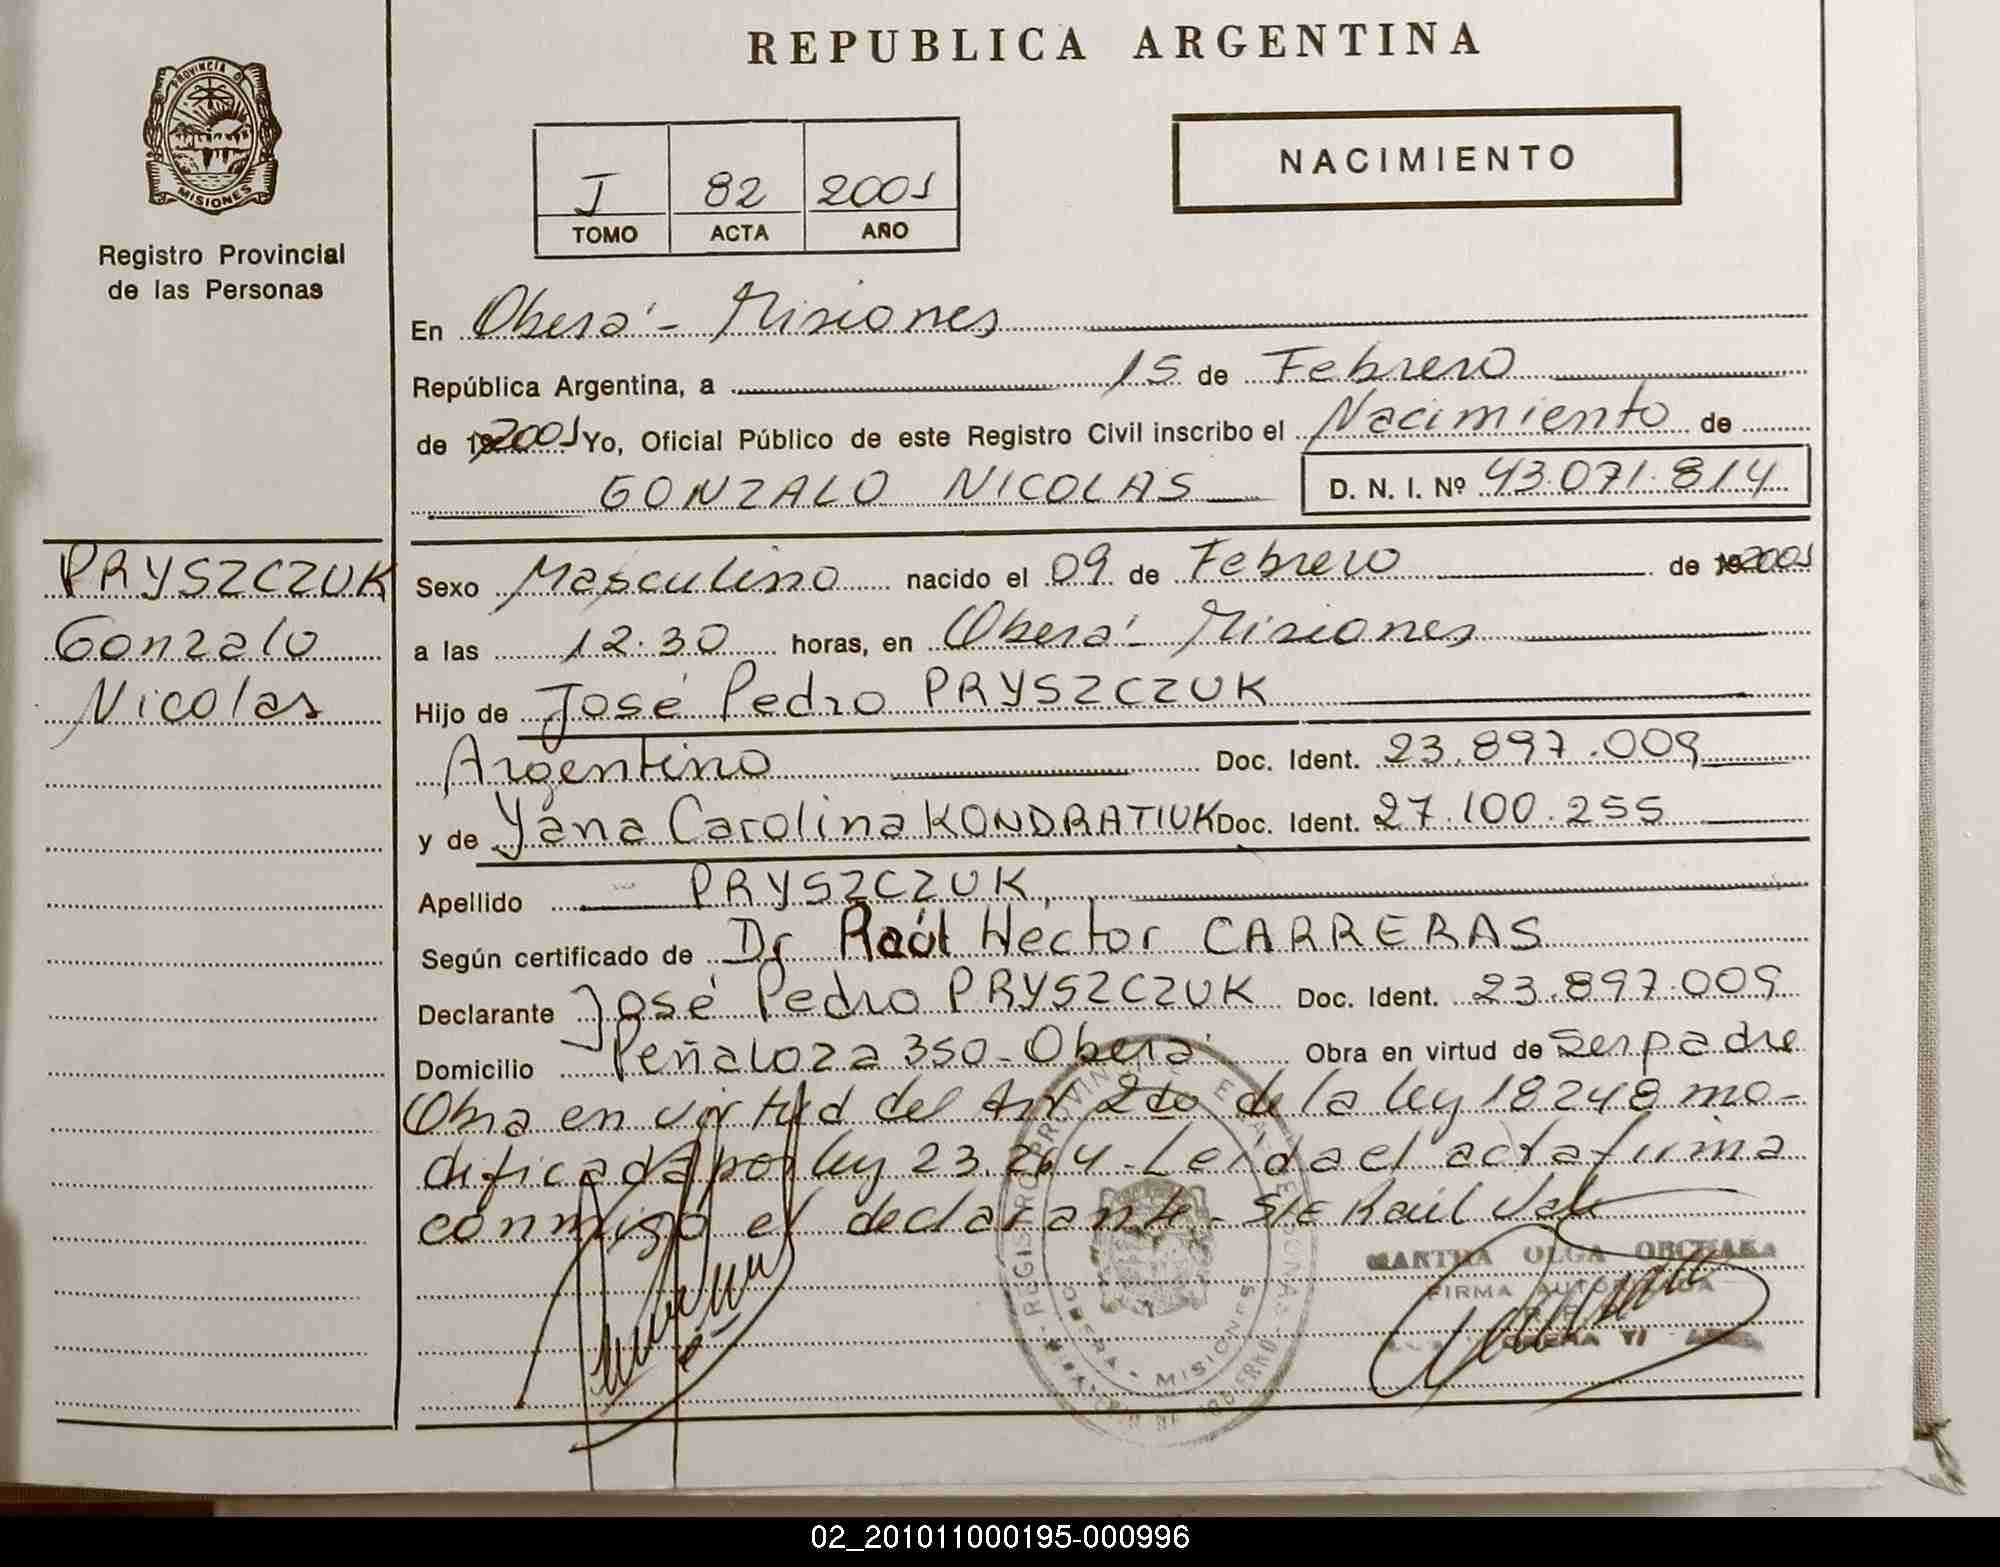 REPUBLICA ARGENTINA
PROVINCIA D
MISIONES
Registro Provincial
de las Personas
J 82 2001
TOMO ACTA AÑO
NACIMIENTO
En Oberá - Misiones
República Argentina, a 15 de Febrero
de 2001 Yo, Oficial Público de este Registro Civil inscribo el Nacimiento de
GONZALO NICOLAS D. N. I. Nº 43.071.814
PRYSZCZUK
Gonzalo
Nicolas
Sexo Masculino nacido el 09 de Febrero de 2001
a las 12.30 horas, en Oberá - Misiones
Hijo de José Pedro PRYSZCZUK
Argentino Doc. Ident. 23.897.009
y de Yana Carolina KONDRATIUK Doc. Ident. 27.100.255
Apellido PRYSZCZUK
Según certificado de Dr Raúl Héctor CARRERAS
Declarante José Pedro PRYSZCZUK Doc. Ident. 23.897.009
Domicilio Peñaloza 350 - Oberá Obra en virtud de ser padre
Obra en virtud del Art 2do de la ley 18248 mo-
dificada por ley 23.264 - Leida el acta firma
conmigo el declarante - S/E Raúl Vale
MARTHA OLGA
FIRMA AUTORIZADA
OBERA - MISIONES
02_201011000195-000996